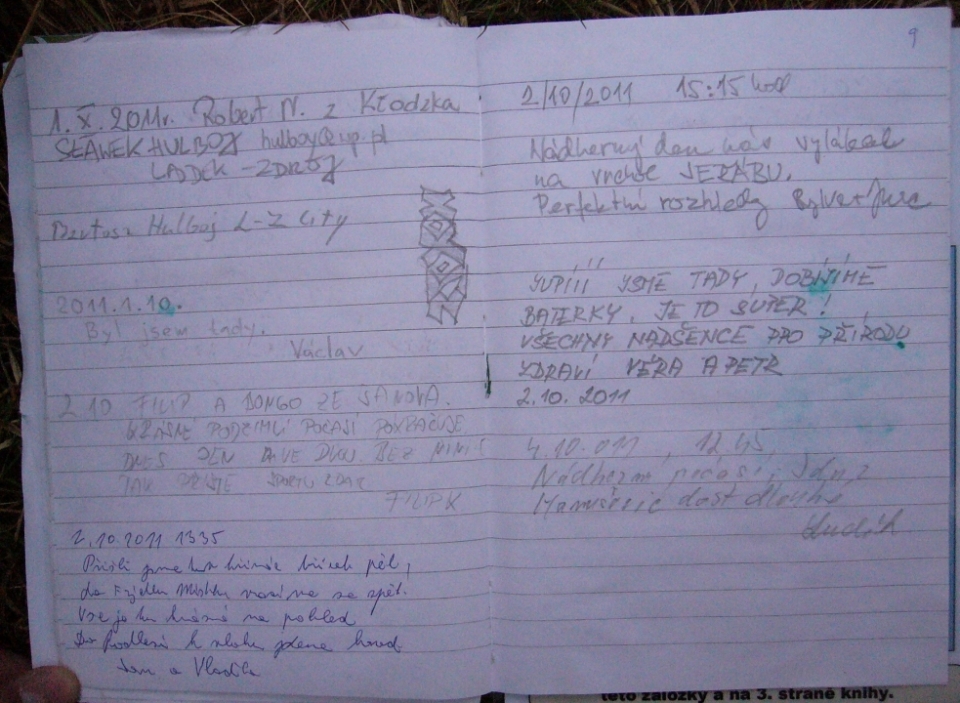 1. X. 2011r. Robert N. z Kłodzka
SŁAWEK HULBOJ hulboy@wp.pl
LĄDEK-ZDRÓJ
Hulboj L-Z City
2011.1.10.
Byl jsem tady.
Václav
2.10 FILIP A BONGO ZE ŠANOVA.
KRÁSNÉ PODZIMNÍ POČASÍ POKRAČUJE
DNES JEN DVE BEZ
TAK PŘÍŠTĚ
FILIPK
2.10.2011 1335
Přišli jsme
do se zpět.
Vse je tu krásné na pohled
Do Podlesí k vlaku
Jan a Vlasta
9
2/10/2011 15:15 hod
Nádherný den nás vylákal
na vrchol JEŘÁBU.
Perfektní rozhledy
YUPÍÍÍ JSME TADY, DOBÍJÍME
BATERKY, JE TO SUPER!
VŠECHNY NADŠENCE PRO PŘÍRODU
ZDRAVÍ VĚRA A PETR
2.10.2011
4.10.011, 12.45,
Nádherné počasí, z
Hanušovic dost dlouhá
teto záložky a na 3. straně knihy.